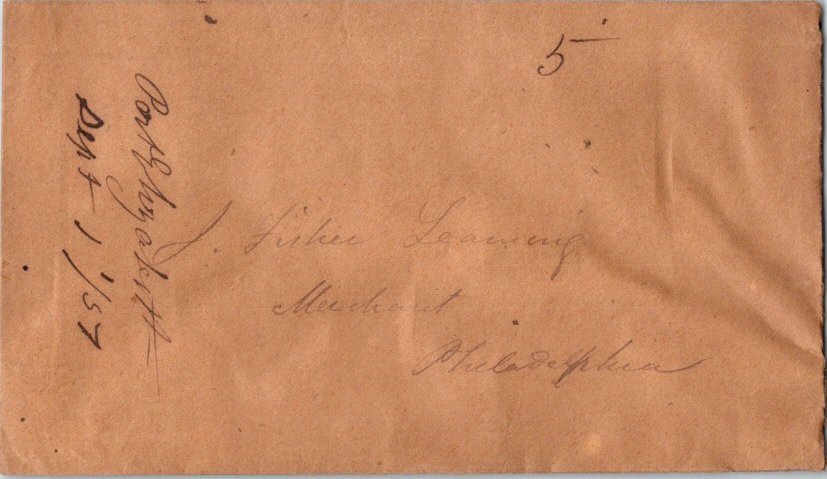 5
Port Elizabeth
Sept 1 '57
J. Fisher Leaming
Merchant
Philadelphia